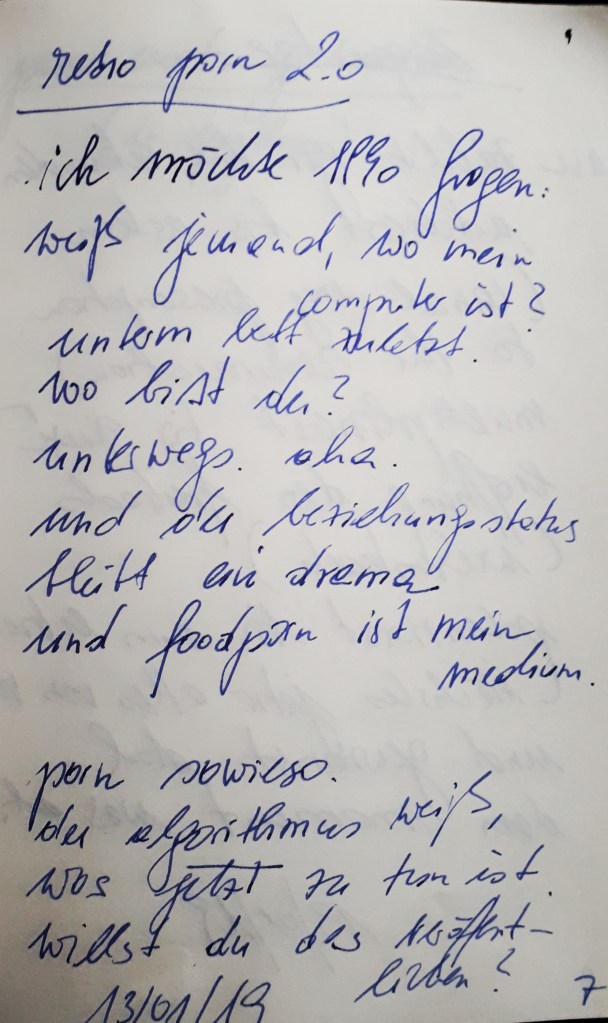 retro porn 2.0
ich möchte 1990 fragen:
weiß jemand, wo mein
computer ist?
unterm bett zuletzt.
wo bist du?
unterwegs. aha.
und der beziehungsstatus
bleibt ein drama
und foodporn ist mein
medium.
porn sowieso.
der algorithmus weiß,
was jetzt zu tun ist.
willst du das veröffent-
lichen?
13/01/19
7